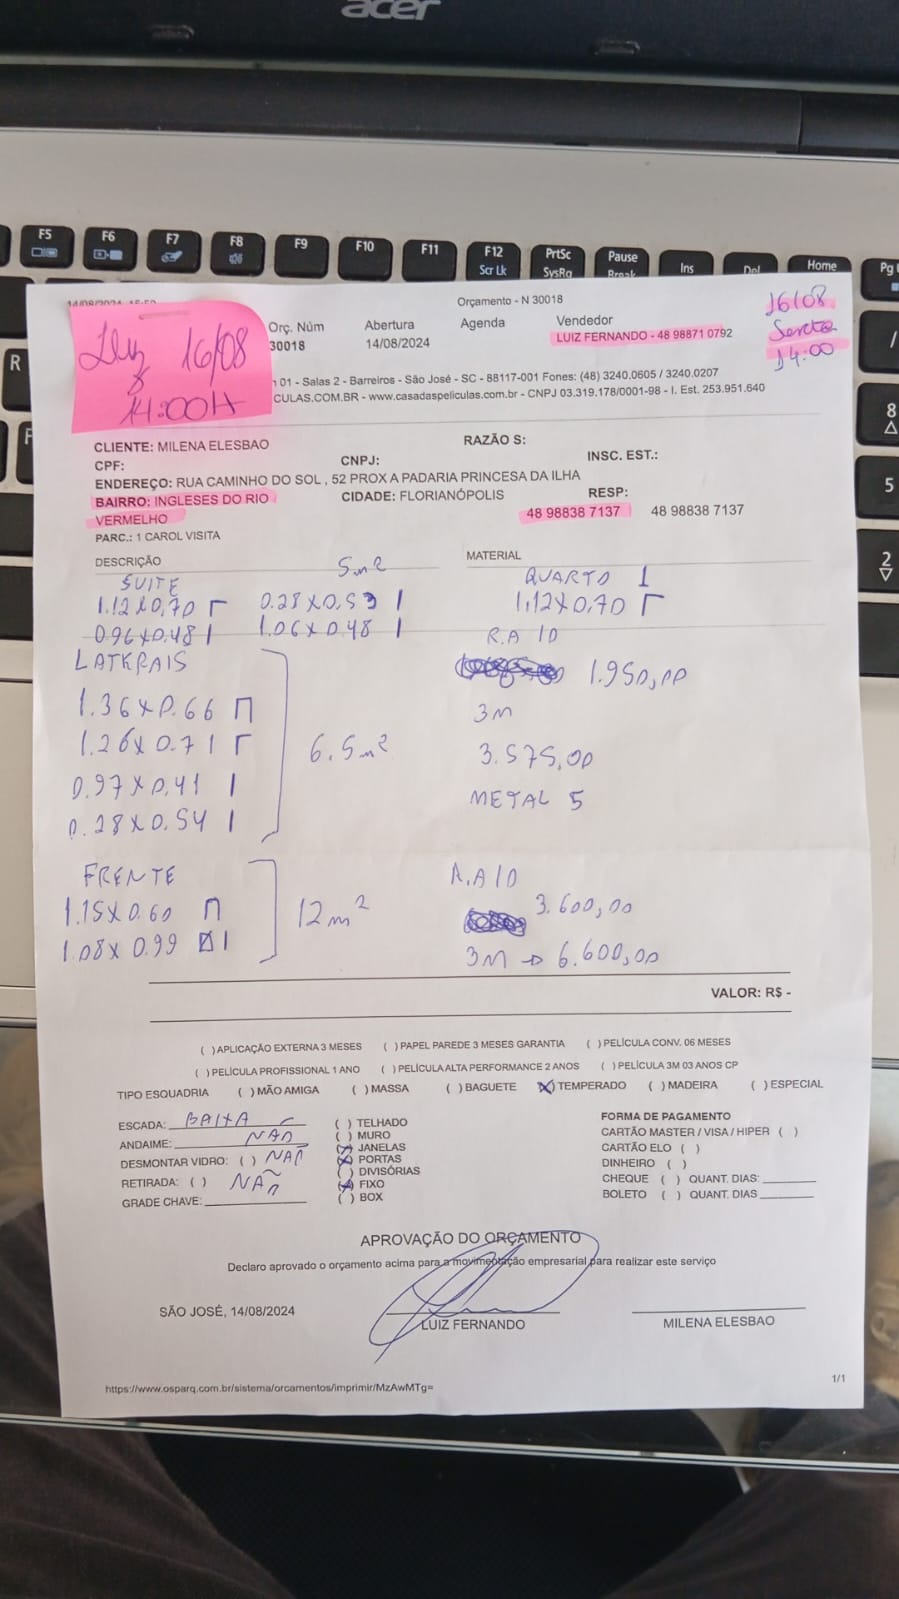 acer
F5 F6 F7 F8 F9 F10 F11 F12 PrtSc Pause Ins Del Home Pg
Scr Lk SysRq Break
R
F
/
8
5
2
14/08/2024 Orçamento - N 30018
16/08
14:00
16/08
14:00H
Orç. Núm Abertura Agenda Vendedor
30018 14/08/2024 LUIZ FERNANDO - 48 98871 0792
01 - Salas 2 - Barreiros - São José - SC - 88117-001 Fones: (48) 3240.0605 / 3240.0207
CULAS.COM.BR - www.casadaspeliculas.com.br - CNPJ 03.319.178/0001-98 - I. Est. 253.951.640
CLIENTE: MILENA ELESBAO RAZÃO S:
CPF: CNPJ: INSC. EST.:
ENDEREÇO: RUA CAMINHO DO SOL , 52 PROX A PADARIA PRINCESA DA ILHA
BAIRRO: INGLESES DO RIO CIDADE: FLORIANÓPOLIS RESP:
VERMELHO 48 98838 7137 48 98838 7137
PARC.: 1 CAROL VISITA
DESCRIÇÃO 5m2 MATERIAL
SUITE QUARTO 1
1.12x0,70 0.28x0.53 1,12x0,70
0.96x0.48 1.06x0.48 R.A 10
LATERAIS 1.950,00
1.36x0.66 3M
1.26x0.71 6.5m2 3.575,00
0.97x0,41 METAL 5
0.28x0.54
FRENTE R.A 10
1.15x0.60 12m2 3.600,00
1.08x0.99 3M → 6.600,00
VALOR: R$ -
( )APLICAÇÃO EXTERNA 3 MESES ( )PAPEL PAREDE 3 MESES GARANTIA ( )PELÍCULA CONV. 06 MESES
( )PELÍCULA PROFISSIONAL 1 ANO ( )PELÍCULA ALTA PERFORMANCE 2 ANOS ( )PELÍCULA 3M 03 ANOS CP
TIPO ESQUADRIA ( )MÃO AMIGA ( )MASSA ( )BAGUETE (X)TEMPERADO ( )MADEIRA ( )ESPECIAL
ESCADA: BAIXA ( )TELHADO FORMA DE PAGAMENTO
ANDAIME: NÃO ( )MURO CARTÃO MASTER / VISA / HIPER ( )
DESMONTAR VIDRO: ( ) NÃO (X)JANELAS CARTÃO ELO ( )
RETIRADA: ( ) NÃO (X)PORTAS DINHEIRO ( )
GRADE CHAVE: ( )DIVISÓRIAS CHEQUE ( ) QUANT. DIAS:
(X)FIXO BOLETO ( ) QUANT. DIAS
( )BOX
APROVAÇÃO DO ORÇAMENTO
Declaro aprovado o orçamento acima para a movimentação empresarial para realizar este serviço
SÃO JOSÉ, 14/08/2024 LUIZ FERNANDO MILENA ELESBAO
https://www.osparq.com.br/sistema/orcamentos/imprimir/MzAwMTg= 1/1